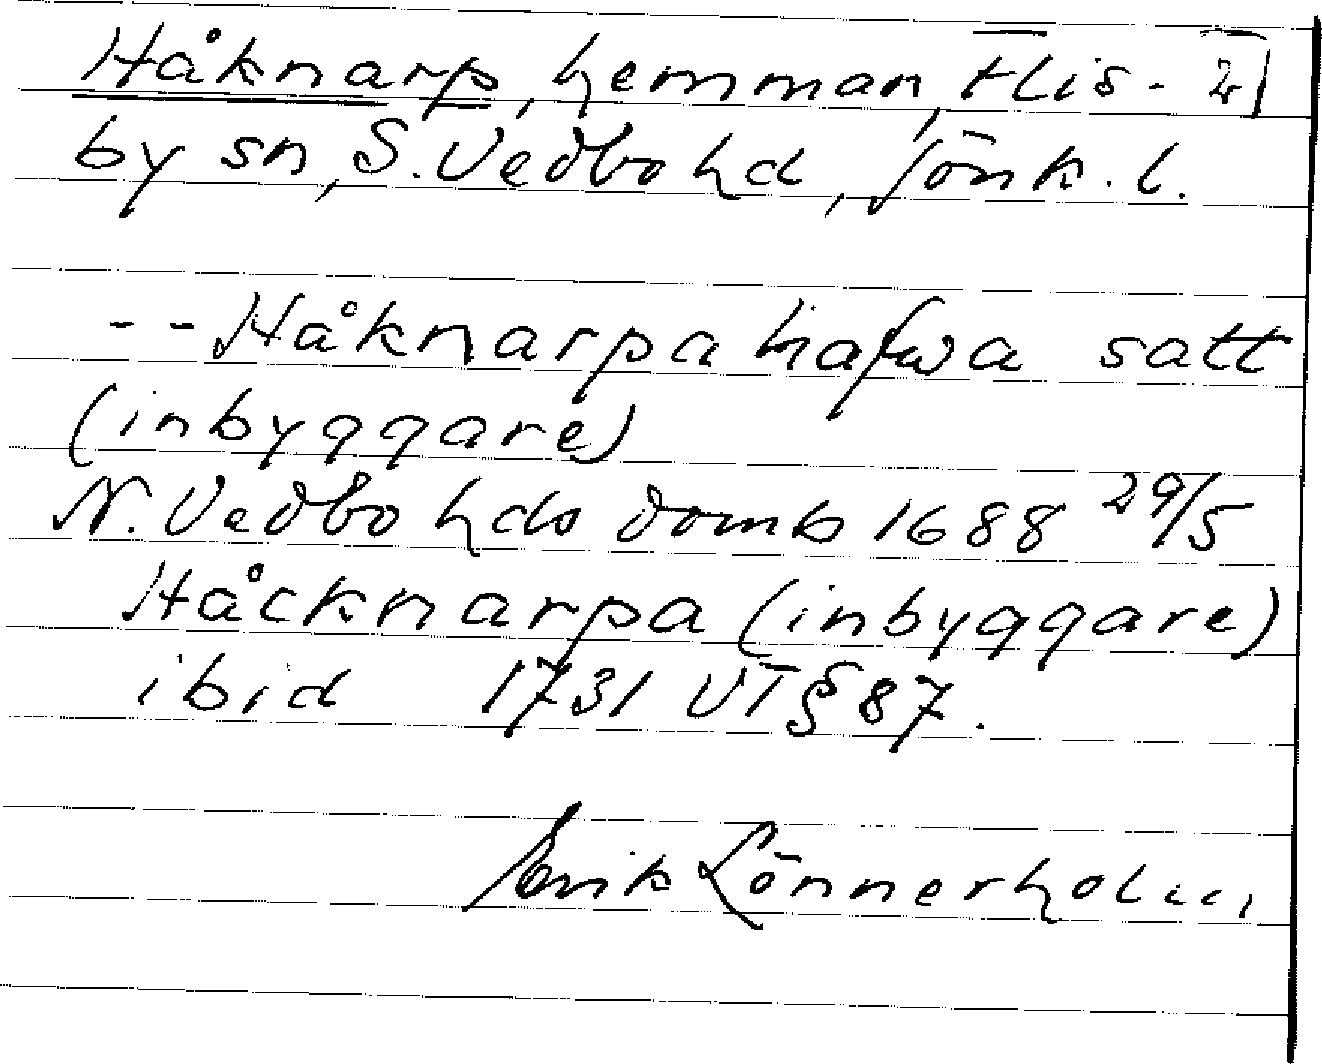 Håknarp, hemman, Flis- 2
by sn, S. Vedbo hd, Jönk. l.
-- Håknarpa hafwa satt
(inbyggare)
N. Vedbo hds domb 1688 29/5
Håcknarpa (inbyggare)
ibid 1731 VT § 87.
Erik Lönnerholm